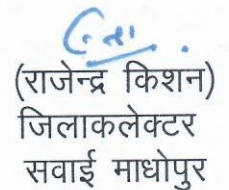 (राजेन्द्र किशन)
जिलाकलेक्टर
सवाई माधोपुर